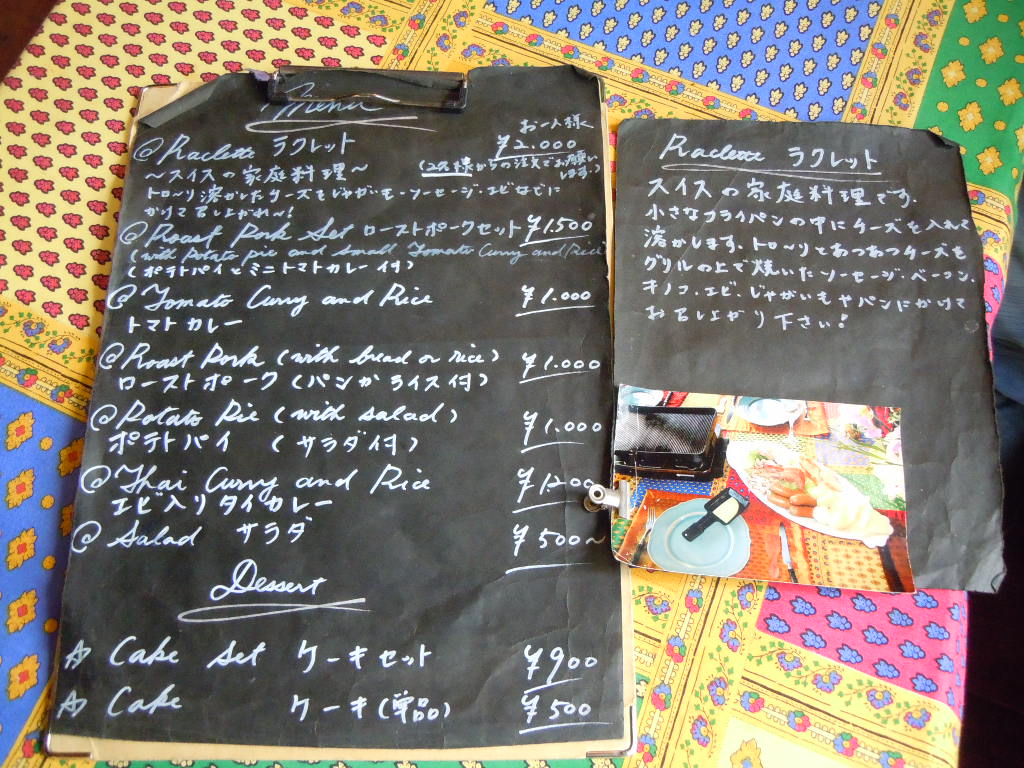 Menu
お一人様
@ Raclette ラクレット ¥2.000
~スイスの家庭料理~ (2名様からの注文でお願いします。)
トローリ溶かしたチーズをじゃがいも・ソーセージ・エビなどに
かけて召し上がれ~!
@ Roast Pork Set ローストポークセット ¥1.500
(with potato pie and small Tomato Curry and Rice)
(ポテトパイとミニトマトカレー付)
@ Tomato Curry and Rice ¥1.000
トマトカレー
@ Roast Pork (with bread or rice) ¥1.000
ローストポーク(パンかライス付)
@ Potato Pie (with salad) ¥1.000
ポテトパイ (サラダ付)
@ Thai Curry and Rice ¥1.200
エビ入りタイカレー
@ Salad サラダ ¥500~
Dessert
☆ Cake Set ケーキセット ¥900
☆ Cake ケーキ(単品) ¥500
Raclette ラクレット
スイスの家庭料理です。
小さなフライパンの中にチーズを入れて
溶かします。トローリとあつあつチーズを
グリルの上で焼いたソーセージ、ベーコン、
キノコ、エビ、じゃがいもやパンにかけて
お召し上がり下さい!